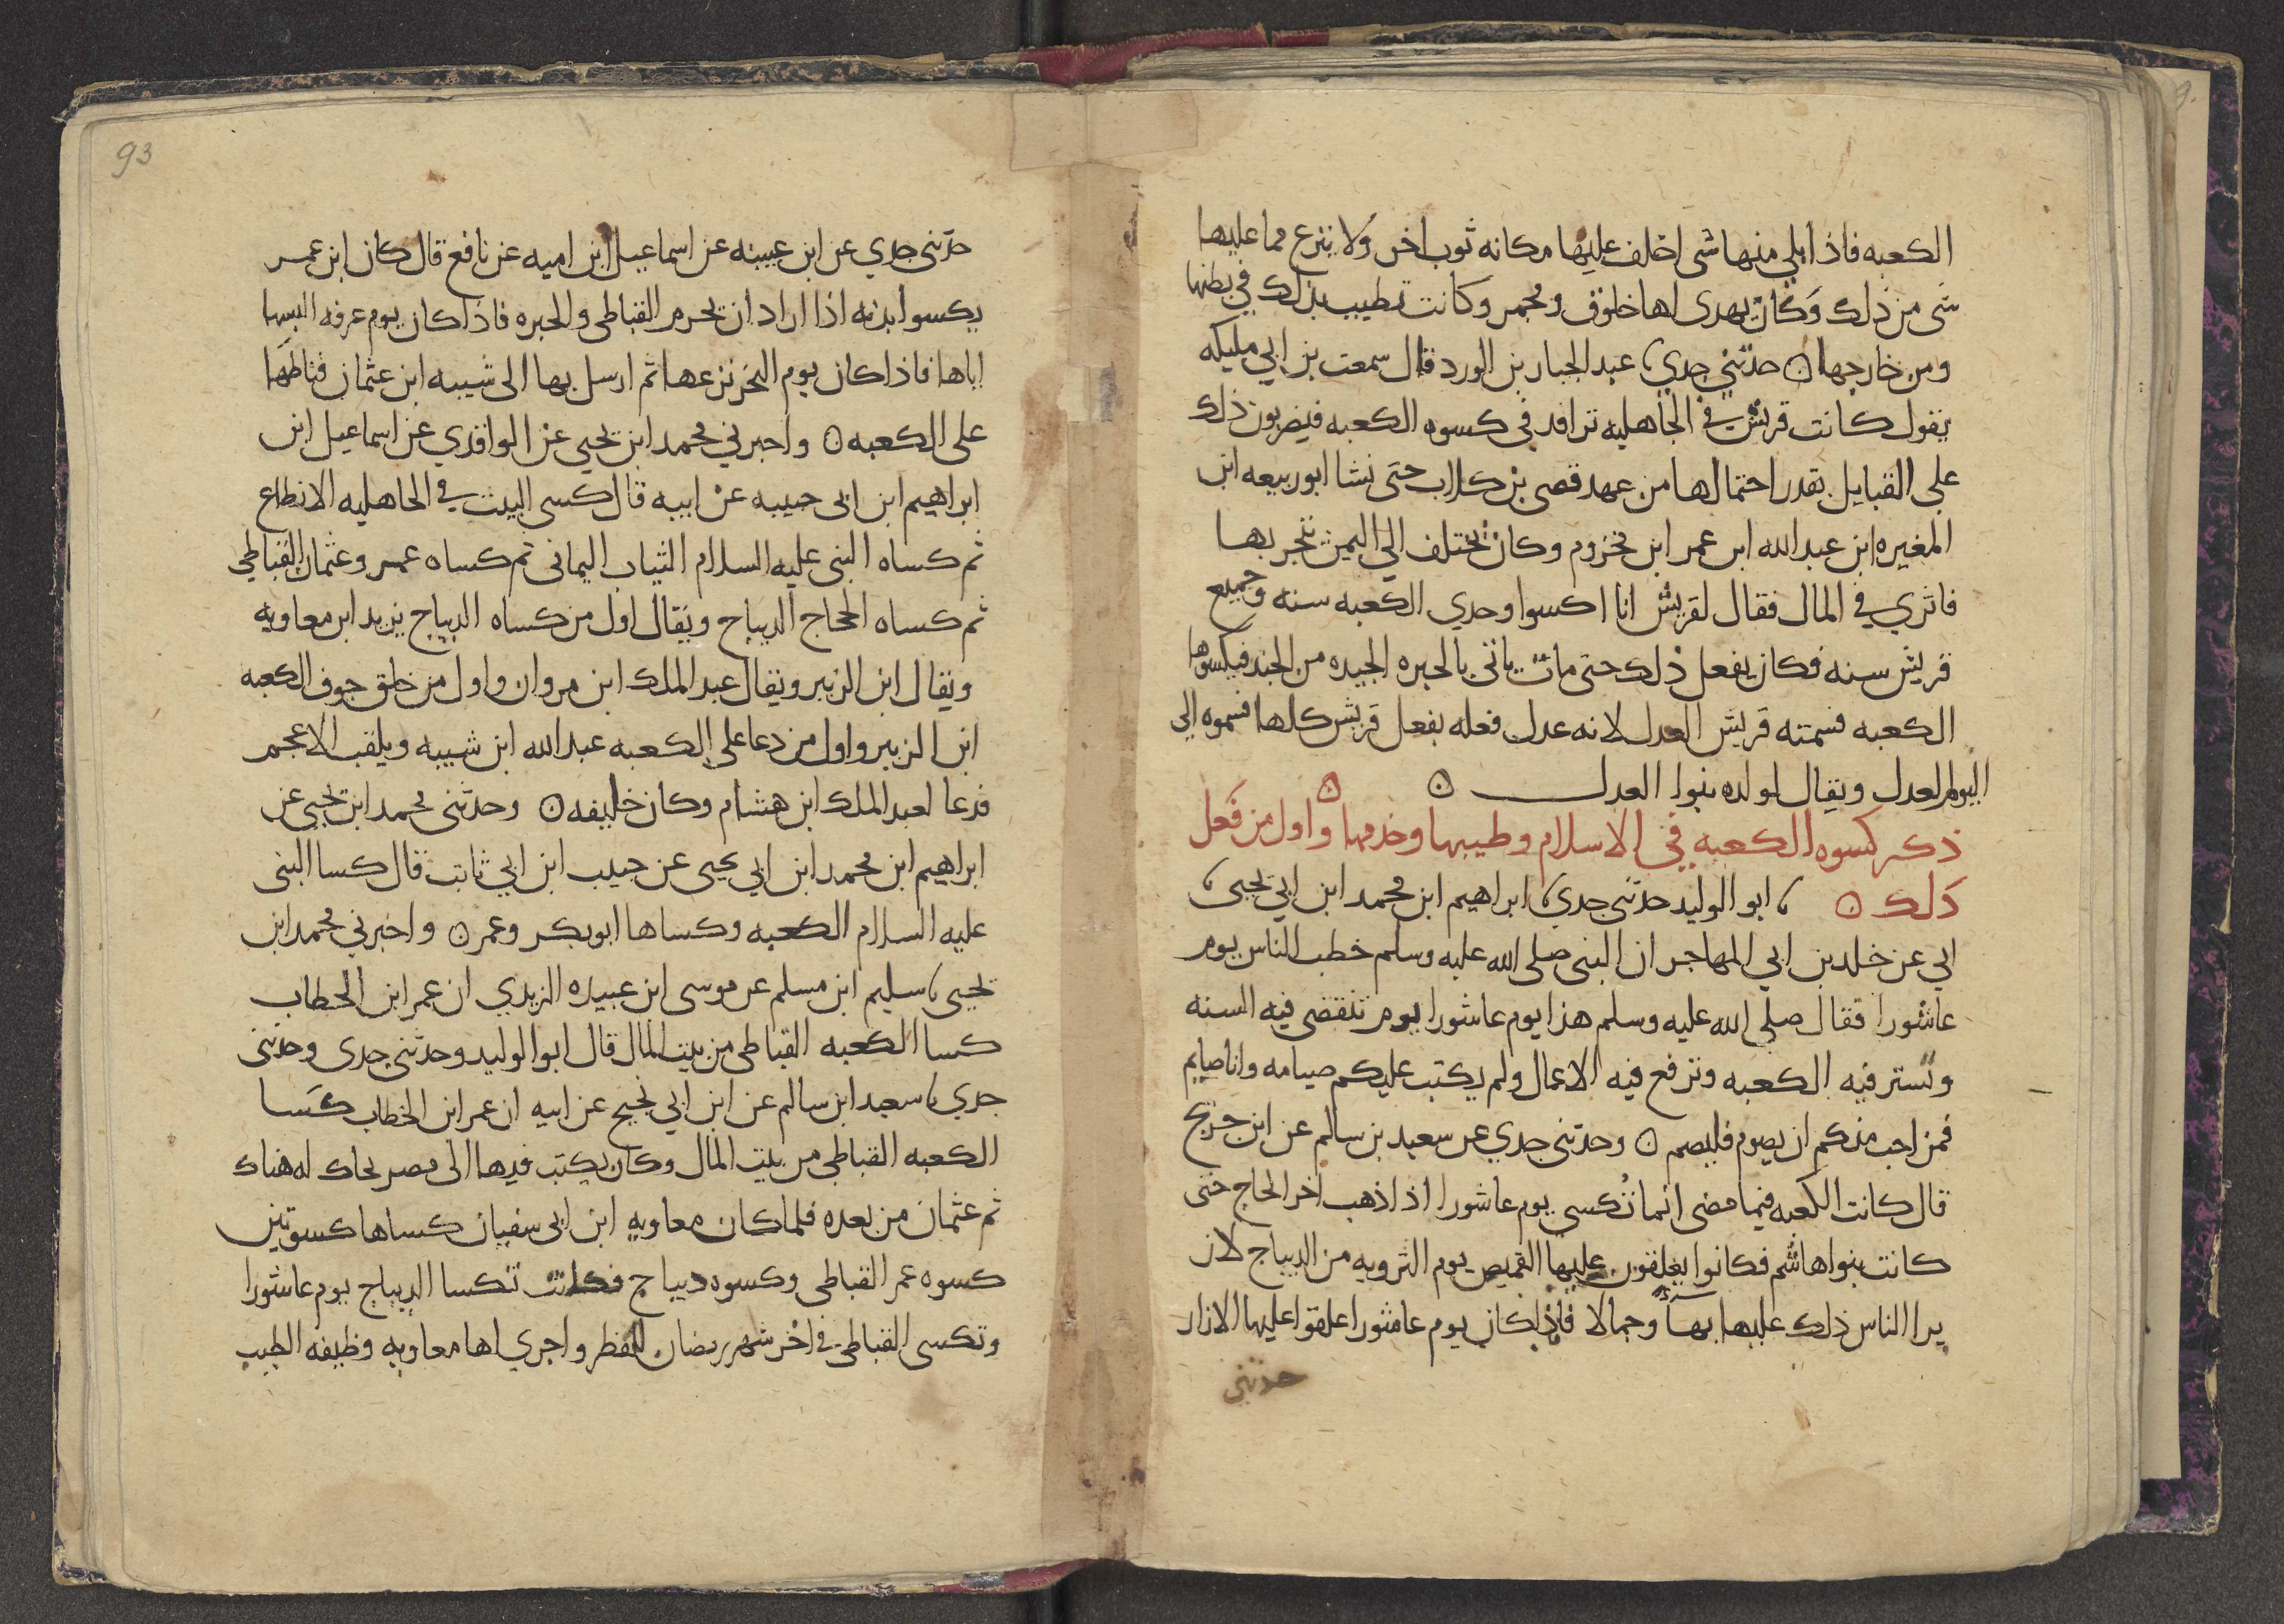 الكعبه فاذا بلي منها شى اخلف عليها مكانه ثوب اخر ولا ينزع مما عليها
شى من ذلك وكان يهدى لها خلوق ومجمر وكانت تطيب بذلك في بطنها
ومن خارجها ۝ حدثني جدي، عبد الجبار بن الورد قال سمعت بن ابي مليكه
يقول كانت قريش في الجاهليه ترافد في كسوه الكعبه فيضربون ذلك
على القبايل بقدر احتمالها من عهد قصى بن كلاب حتى نشا ابو ربيعه ابن
المغيره ابن عبد الله ابن عمر ابن مخزوم وكان يختلف الي اليمن يتجر بها
فاثري في المال فقال لقريش انا اكسوا وحدي الكعبه سنه وجميع
قريش سنه فكان يفعل ذلك حتى مات ياتى بالحبره الجيده من الجند فيكسوها
الكعبه فسمته قريش العدل لانه عدل فعله بفعل قريش كلها فسموه الي
اليوم العدل ويقال لولده بنوا العدل ۝ ۝
ذكر كسوه الكعبه في الاسلام وطيبها وخدمها واول من فعل
ذلك ۝ ، ابو الوليد حدثنى جدي، ابراهيم ابن محمد ابن ابي يحيى،
ابي عن خلد بن ابي المهاجر ان النبى صلى الله عليه وسلم خطب الناس يوم
عاشورا فقال صلى الله عليه وسلم هذا يوم عاشورا يوم تنقضى فيه السنه
وتستر فيه الكعبه وترفع فيه الاعمال ولم يكتب عليكم صيامه وانا صايم
فمن احب منكم ان يصوم فليصم ۝ وحدثنى جدي عن سعيد بن سالم عن ابن جريج
قال كانت الكعبه فيما مضى انما تكسى يوم عاشورا اذا ذهب اخر الحاج حتى
كانت بنوا هاشم فكانوا يعلقون عليها القميص يوم الترويه من الديباج لان
يرا الناس ذلك عليها بهآ وجمالا فاذا كان يوم عاشورا علقوا عليها الازار
حدثنى
93
حدثنى جدي عن ابن عيينه عن اسماعيل ابن اميه عن نافع قال كان ابن عمر
يكسوا بدنه اذا اراد ان يحرم القباطى والحبره فاذا كان يوم عرفه البسها
اياها فاذا كان يوم النحر نزعها ثم ارسل بها الى شيبه ابن عثمان فناطها
على الكعبه ۝ واخبرني محمد ابن يحيى عن الواقدي عن اسماعيل ابن
ابراهيم ابن ابى حبيبه عن ابيه قال كسى البيت في الجاهليه الانطاع
ثم كساه النبى عليه السلام الثياب اليمانى ثم كساه عمر وعثمان القباطي
ثم كساه الحجاج الديباج ويقال اول من كساه الديباج يزيد ابن معاويه
ويقال ابن الزبير ويقال عبد الملك ابن مروان واول من خلق جوف الكعبه
ابن الزبير واول من دعا على الكعبه عبد الله ابن شيبه ويلقب الاعجم
فدعا لعبد الملك ابن هشام وكان خليفه ۝ وحدثنى محمد ابن يحيى عن
ابراهيم ابن محمد ابن ابي يحيى عن حبيب ابن ابي ثابت قال كسا النبى
عليه السلام الكعبه وكساها ابو بكر وعمر ۝ واخبرني محمد ابن
يحيى، سليم ابن مسلم عن موسى ابن عبيده الزبدي ان عمر ابن الخطاب
كسا الكعبه القباطى من بيت المال قال ابو الوليد وحدثنى جدى وحدثنى
جدي، سعيد ابن سالم عن ابن ابي نجيح عن ابيه ان عمر ابن الخطاب كسا
الكعبه القباطي من بيت المال وكان يكتب فيها الى مصر تحاك له هناك
ثم عثمان من بعده فلما كان معاويه ابن ابى سفيان كساها كسوتين
كسوه عمر القباطى وكسوه ديباج فكانت تكسا الديباج يوم عاشورا
وتكسى القباطي في اخر شهر رمضان للفطر واجري لها معاويه وظيفه الطيب